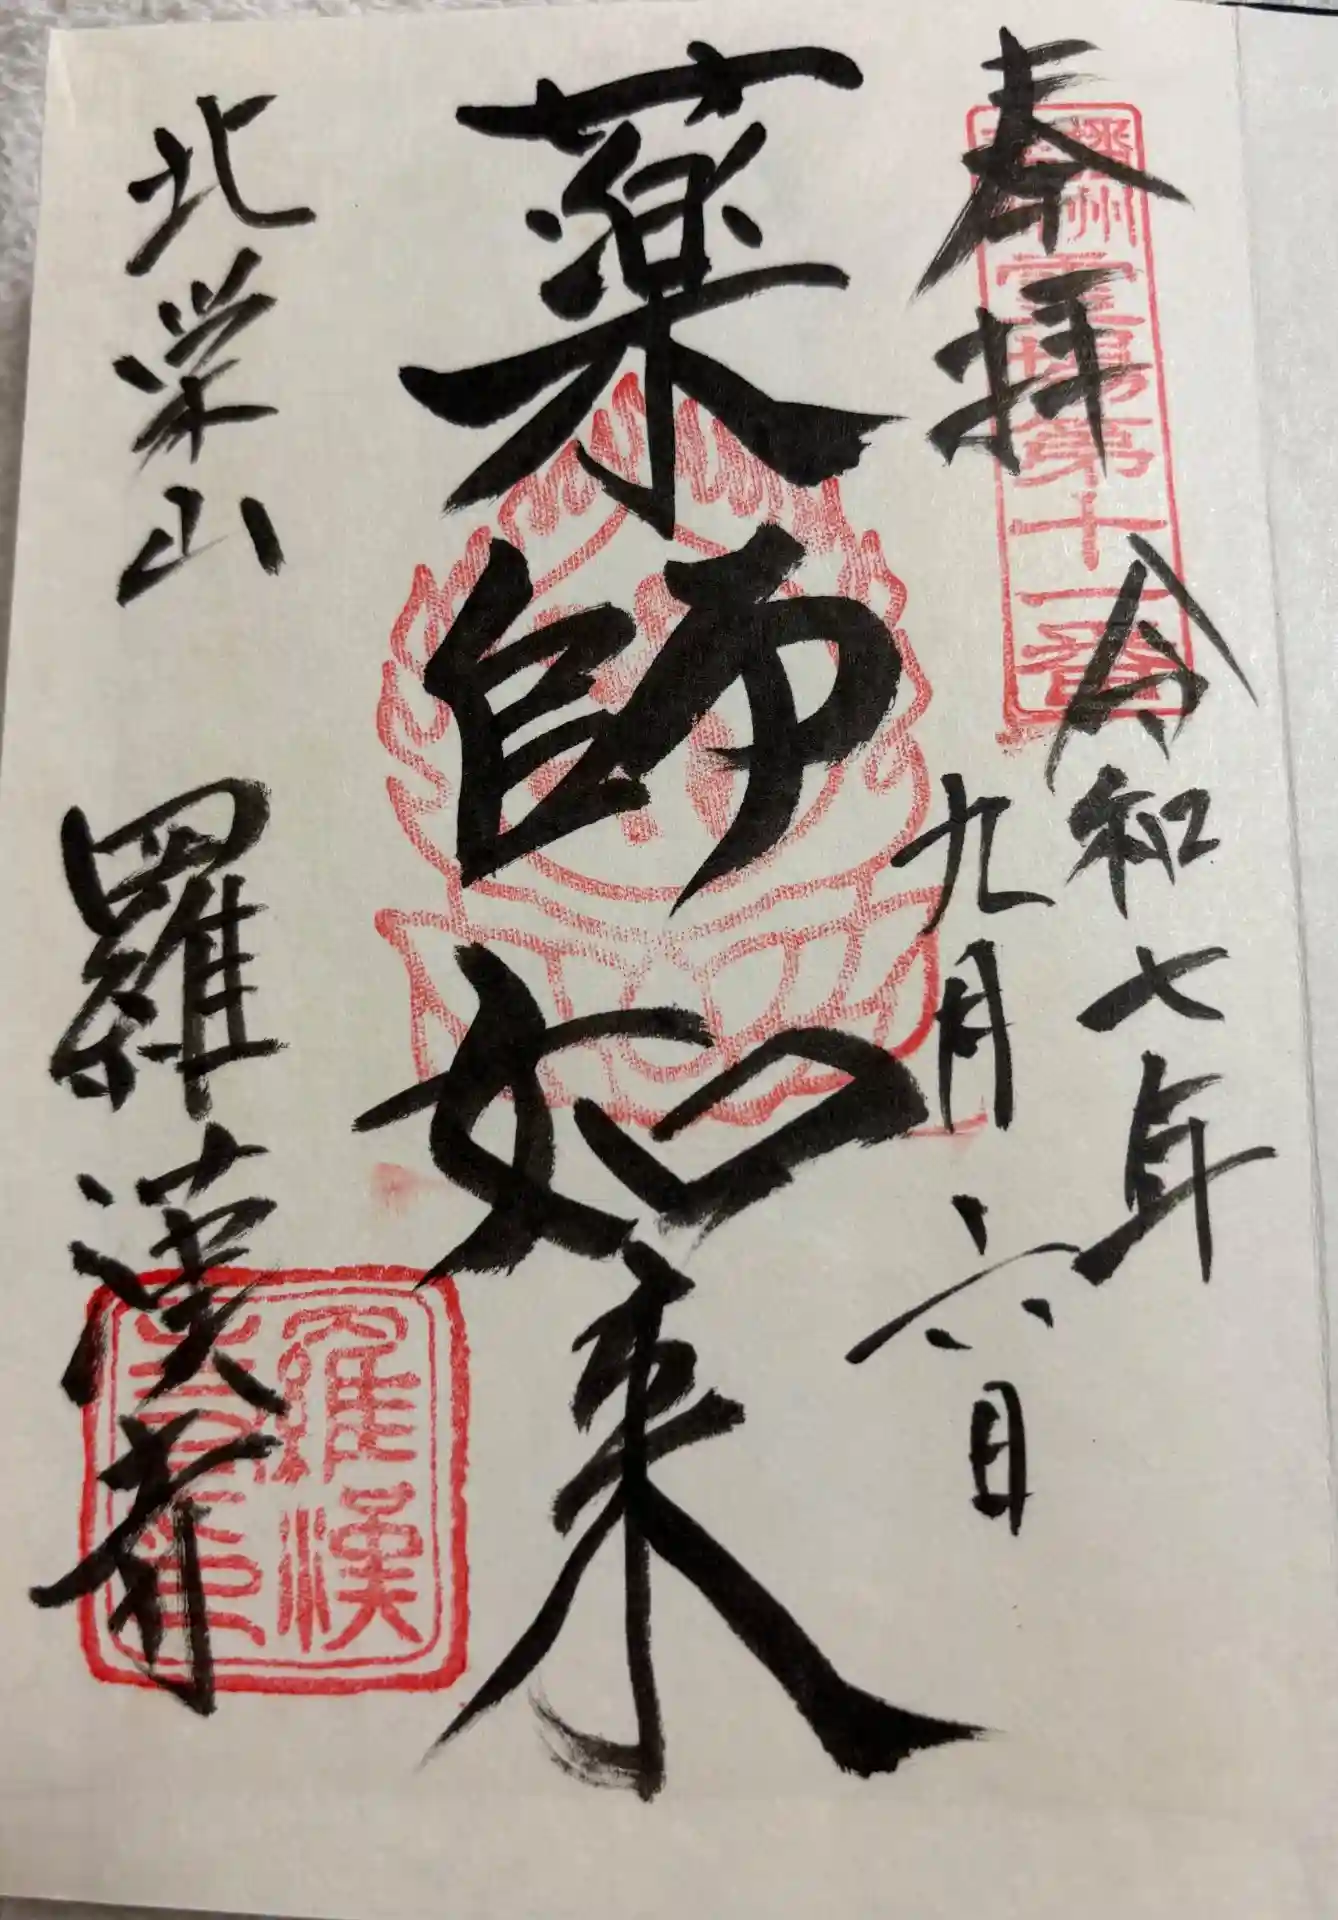 奉拝
播州
霊場第十一番
令和七年
九月六日
薬師如来
北栄山
羅漢寺
羅漢